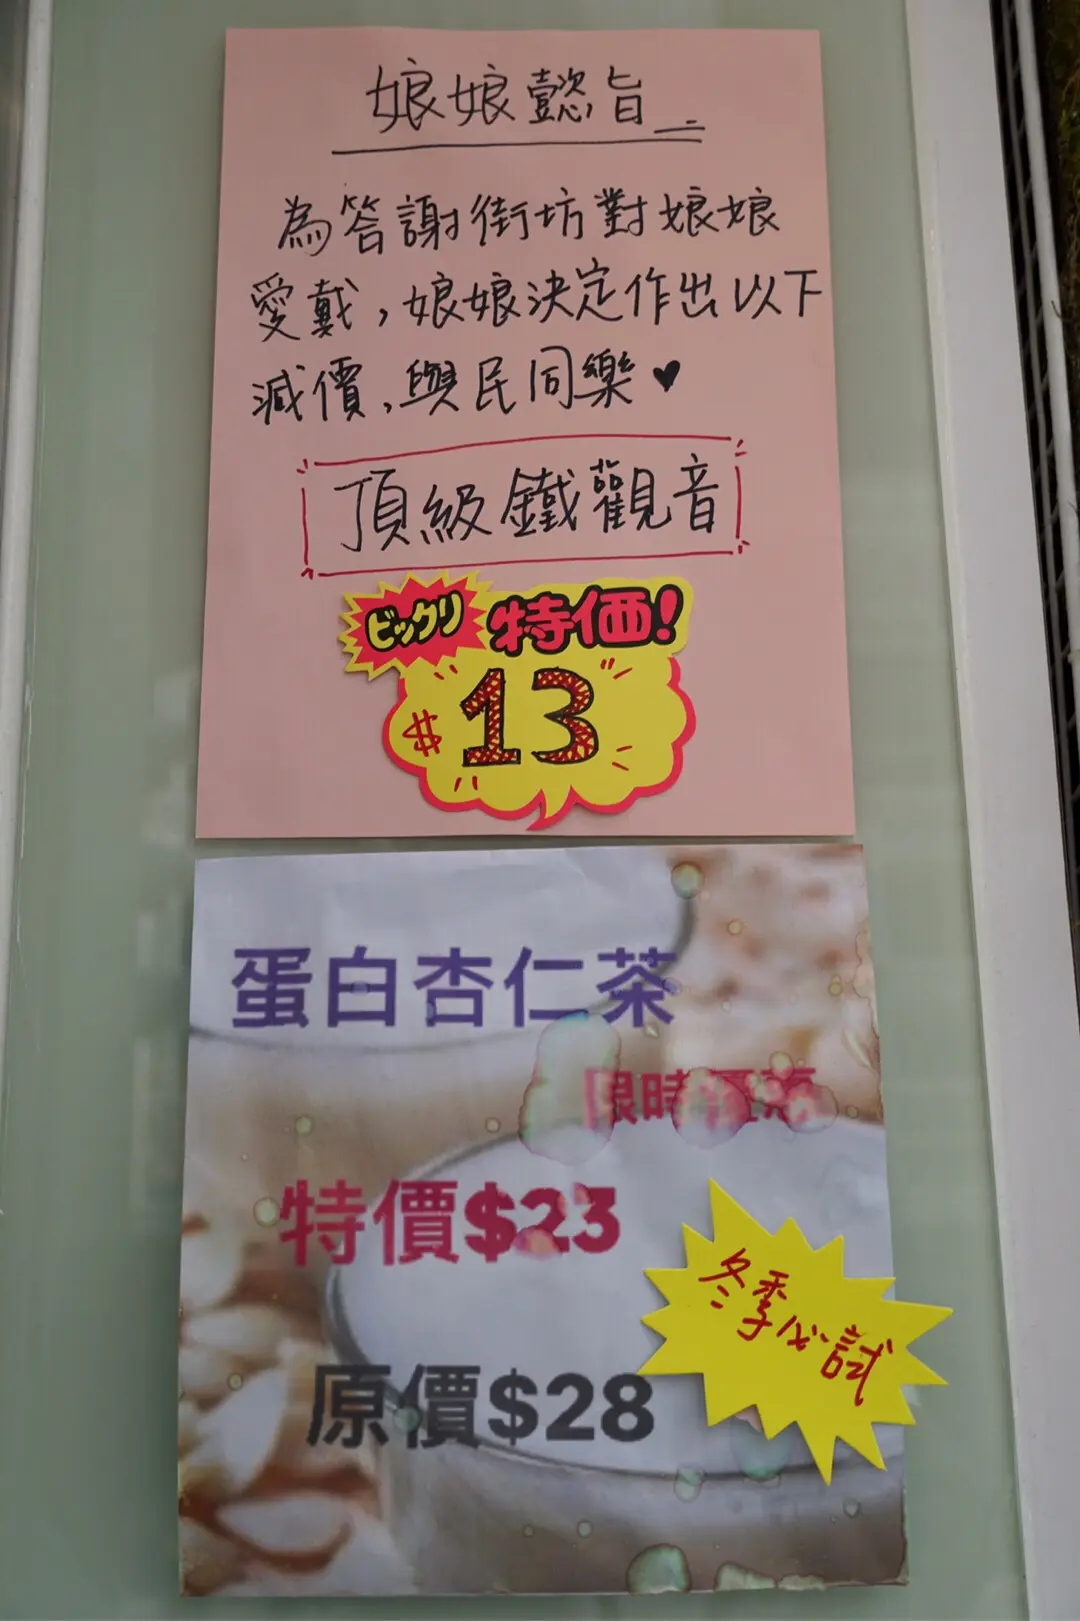 娘娘懿旨
為答謝街坊對娘娘
愛戴,娘娘決定作出以下
減價,與民同樂♥
頂級鐵觀音
ビックリ 特価!
$13
蛋白杏仁茶
限時優惠
特價$23
原價$28
冬季必試